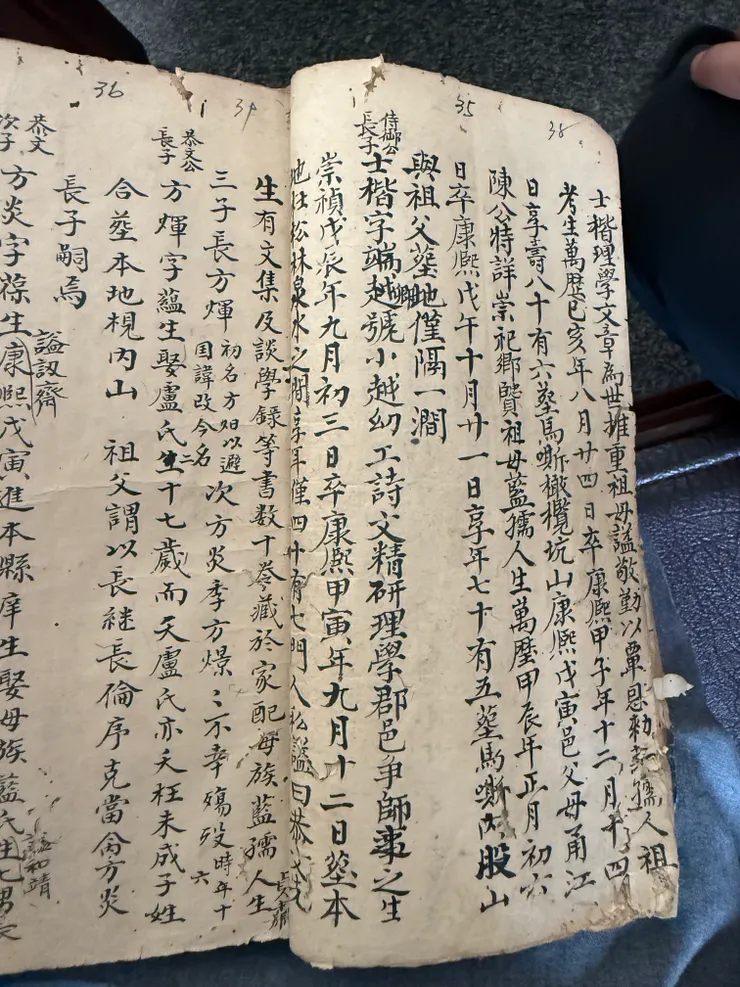 36
34
35
38
士楷理學文章為世推重祖母謚敬勤以覃恩勅孺人祖
考生萬歷已亥年八月廿四日卒康熙甲子年十二月十四
日享壽八十有六塟馬嘶橄欖坑山康熙戊寅邑父母甬江
陳公特詳崇祀鄉賢祖母藍孺人生萬歷甲辰年正月初六
日卒康熙戊午十月廿一日享年七十有五塟馬嘶內股山
與祖父墓地僅隔一澗
侍御公
長子
士楷字端卿號小越幼工詩文精研理學郡邑爭師事之生
崇禎戊辰年九月初三日卒康熙甲寅年九月十二日塟本
地杜松林泉水之間享年僅四十有七門人私謚曰恭文
生有文集及談學録等書数十卷藏於家配每族藍孺人生
三子長方煇
初名方妲以避
国諱改今名
次方炎季方燝〻不幸殤殁
時年十
六
恭文公
長子
方煇字藴生娶盧氏生十七歲而夭盧氏亦夭枉未成子姓
合塟本地梘內山 祖父謂以長継長倫序克當侖方炎
長子嗣焉
謚訒齋
恭文
次子
方炎字葆生康熙戊寅進本縣庠生娶母族藍氏生七男長
謚和靖